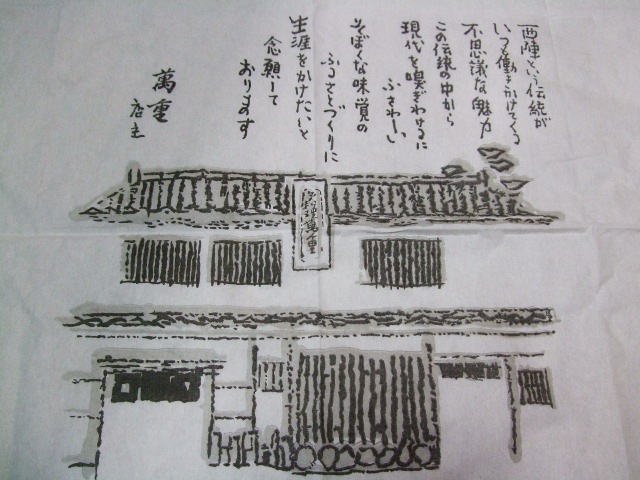 西陣という伝統が
いつも働きかけてくる
不思議な魅力
この伝統の中から
現代を嗅ぎわけるに
ふさわしい
そぼくな味覚の
ふるさとづくりに
生涯をかけたいと
念願して
おります
萬重
店主
萬重